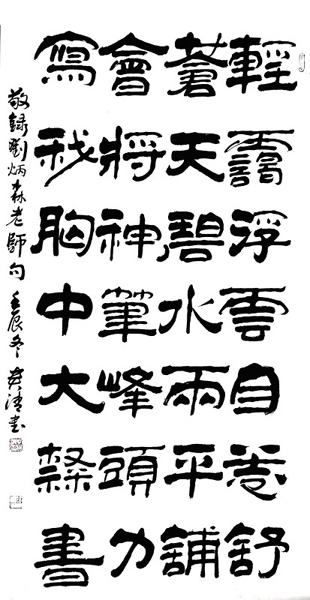 輕靄浮雲自卷舒
蒼天碧水兩平鋪
會將神筆峰頭力
寫我胸中大隸書
敬錄劉炳森老師句 壬辰冬 英濤書